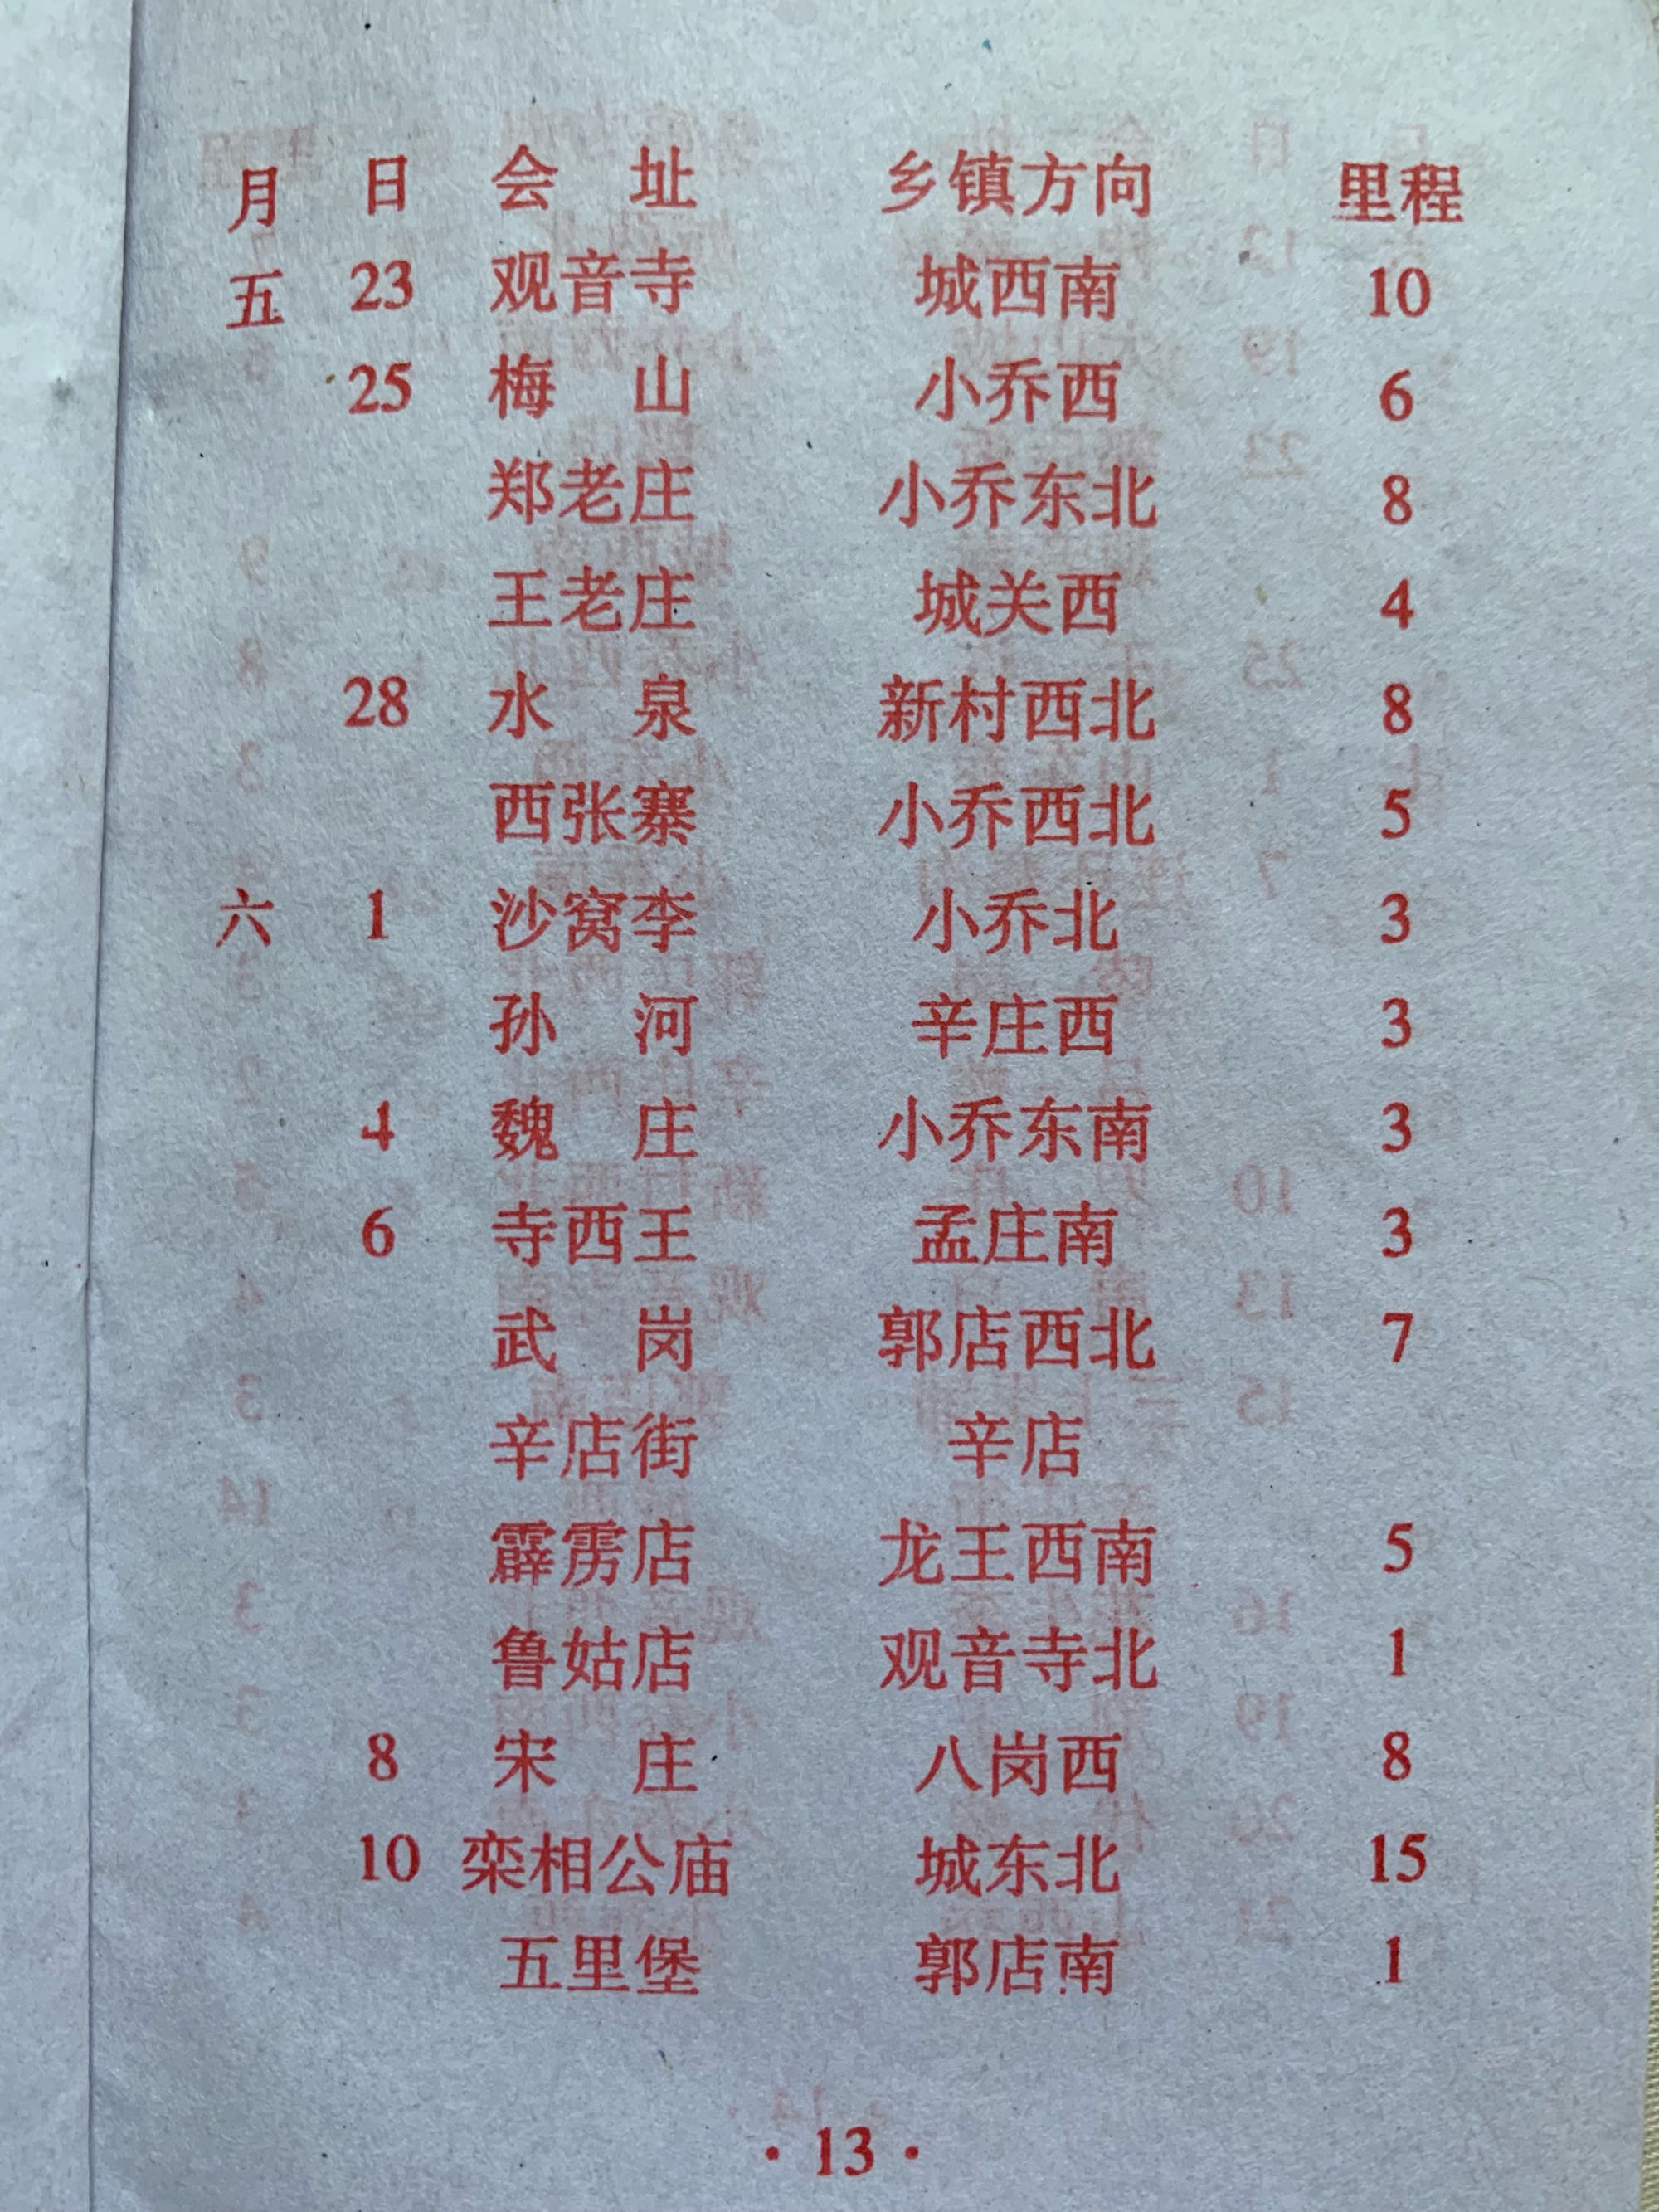 月 日 会 址 乡镇方向 里程
五 23 观音寺 城西南 10
25 梅 山 小乔西 6
郑老庄 小乔东北 8
王老庄 城关西 4
28 水 泉 新村西北 8
西张寨 小乔西北 5
六 1 沙窝李 小乔北 3
孙 河 辛庄西 3
4 魏 庄 小乔东南 3
6 寺西王 孟庄南 3
武 岗 郭店西北 7
辛店街 辛店
霹雳店 龙王西南 5
鲁姑店 观音寺北 1
8 宋 庄 八岗西 8
10 栾相公庙 城东北 15
五里堡 郭店南 1
· 13 ·